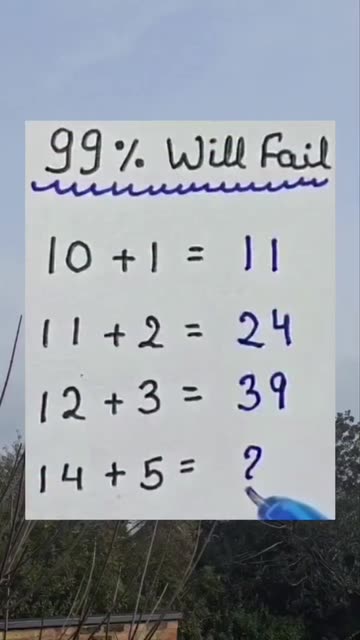 99% Will Fail
10 + 1 = 11
11 + 2 = 24
12 + 3 = 39
14 + 5 = ?